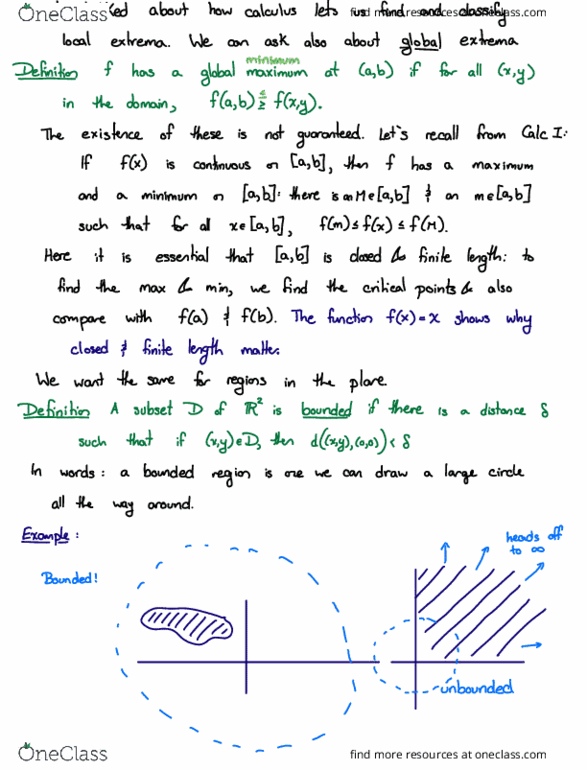 OneClass
find more resources at oneclass.com
about how calculus lets us find and classify
local extrema. We can ask also about global extrema
minimum
Definition f has a global maximum at (a,b) if for all (x,y)
in the domain, f(a,b) ≤ ≥ f(x,y).
The existence of these is not guaranteed. Let's recall from Calc I:
If f(x) is continuous on [a,b], then f has a maximum
and a minimum on [a,b]: there is an M∈[a,b] & an m∈[a,b]
such that for all x∈[a,b], f(m) ≤ f(x) ≤ f(M).
Here it is essential that [a,b] is closed & finite length: to
find the max & min, we find the critical points & also
compare with f(a) & f(b). The function f(x)=x shows why
closed & finite length matter.
We want the same for regions in the plane.
Definition A subset D of ℝ² is bounded if there is a distance δ
such that if (x,y)∈D, then d((x,y),(0,0))<δ
In words: a bounded region is one we can draw a large circle
all the way around.
Example:
heads off
to ∞
Bounded!
unbounded
OneClass
find more resources at oneclass.com